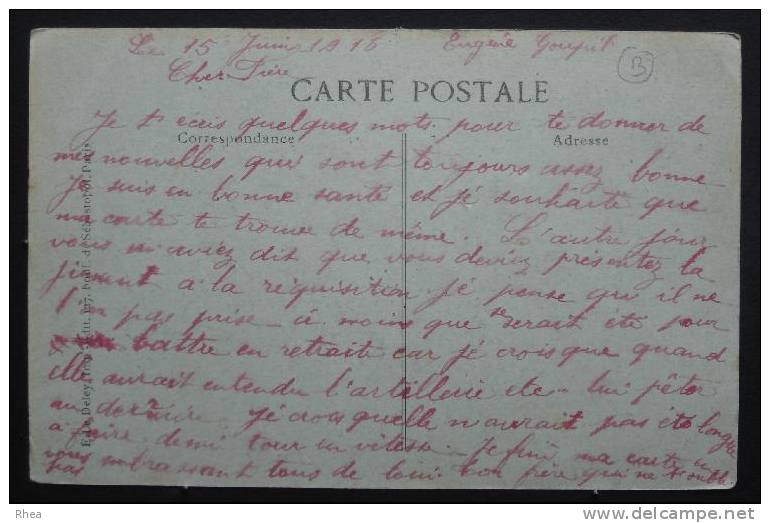 Le 15 Juin 1916 Eugène Goupil
B
Cher Frère
CARTE POSTALE
Je t'ecris quelques mots pour te donner de
Correspondance
Adresse
mes nouvelles qui sont toujours assez bonne
Je suis en bonne santé et jé souhaite que
ma carte te trouve de même. L'autre jour
vous m'aviez dit que vous deviez présentez la
jument a la requisition Jé pense qu'il ne
l'on pas prise a moins que se serait été pour
battre en retraite car jé crois que quand
elle aurait entendu l'artillerie etc lui pêter
au derrière jé crois quelle n'aurait pas été longue
a faire demi tour en vitesse. Je fini ma carte en
vous embrassant tous de loin ton frère qui ne t'oublie
pas
E. Le Deley, 127, boul. de Sébastopol, Paris
Rhea
www.delcampe.net